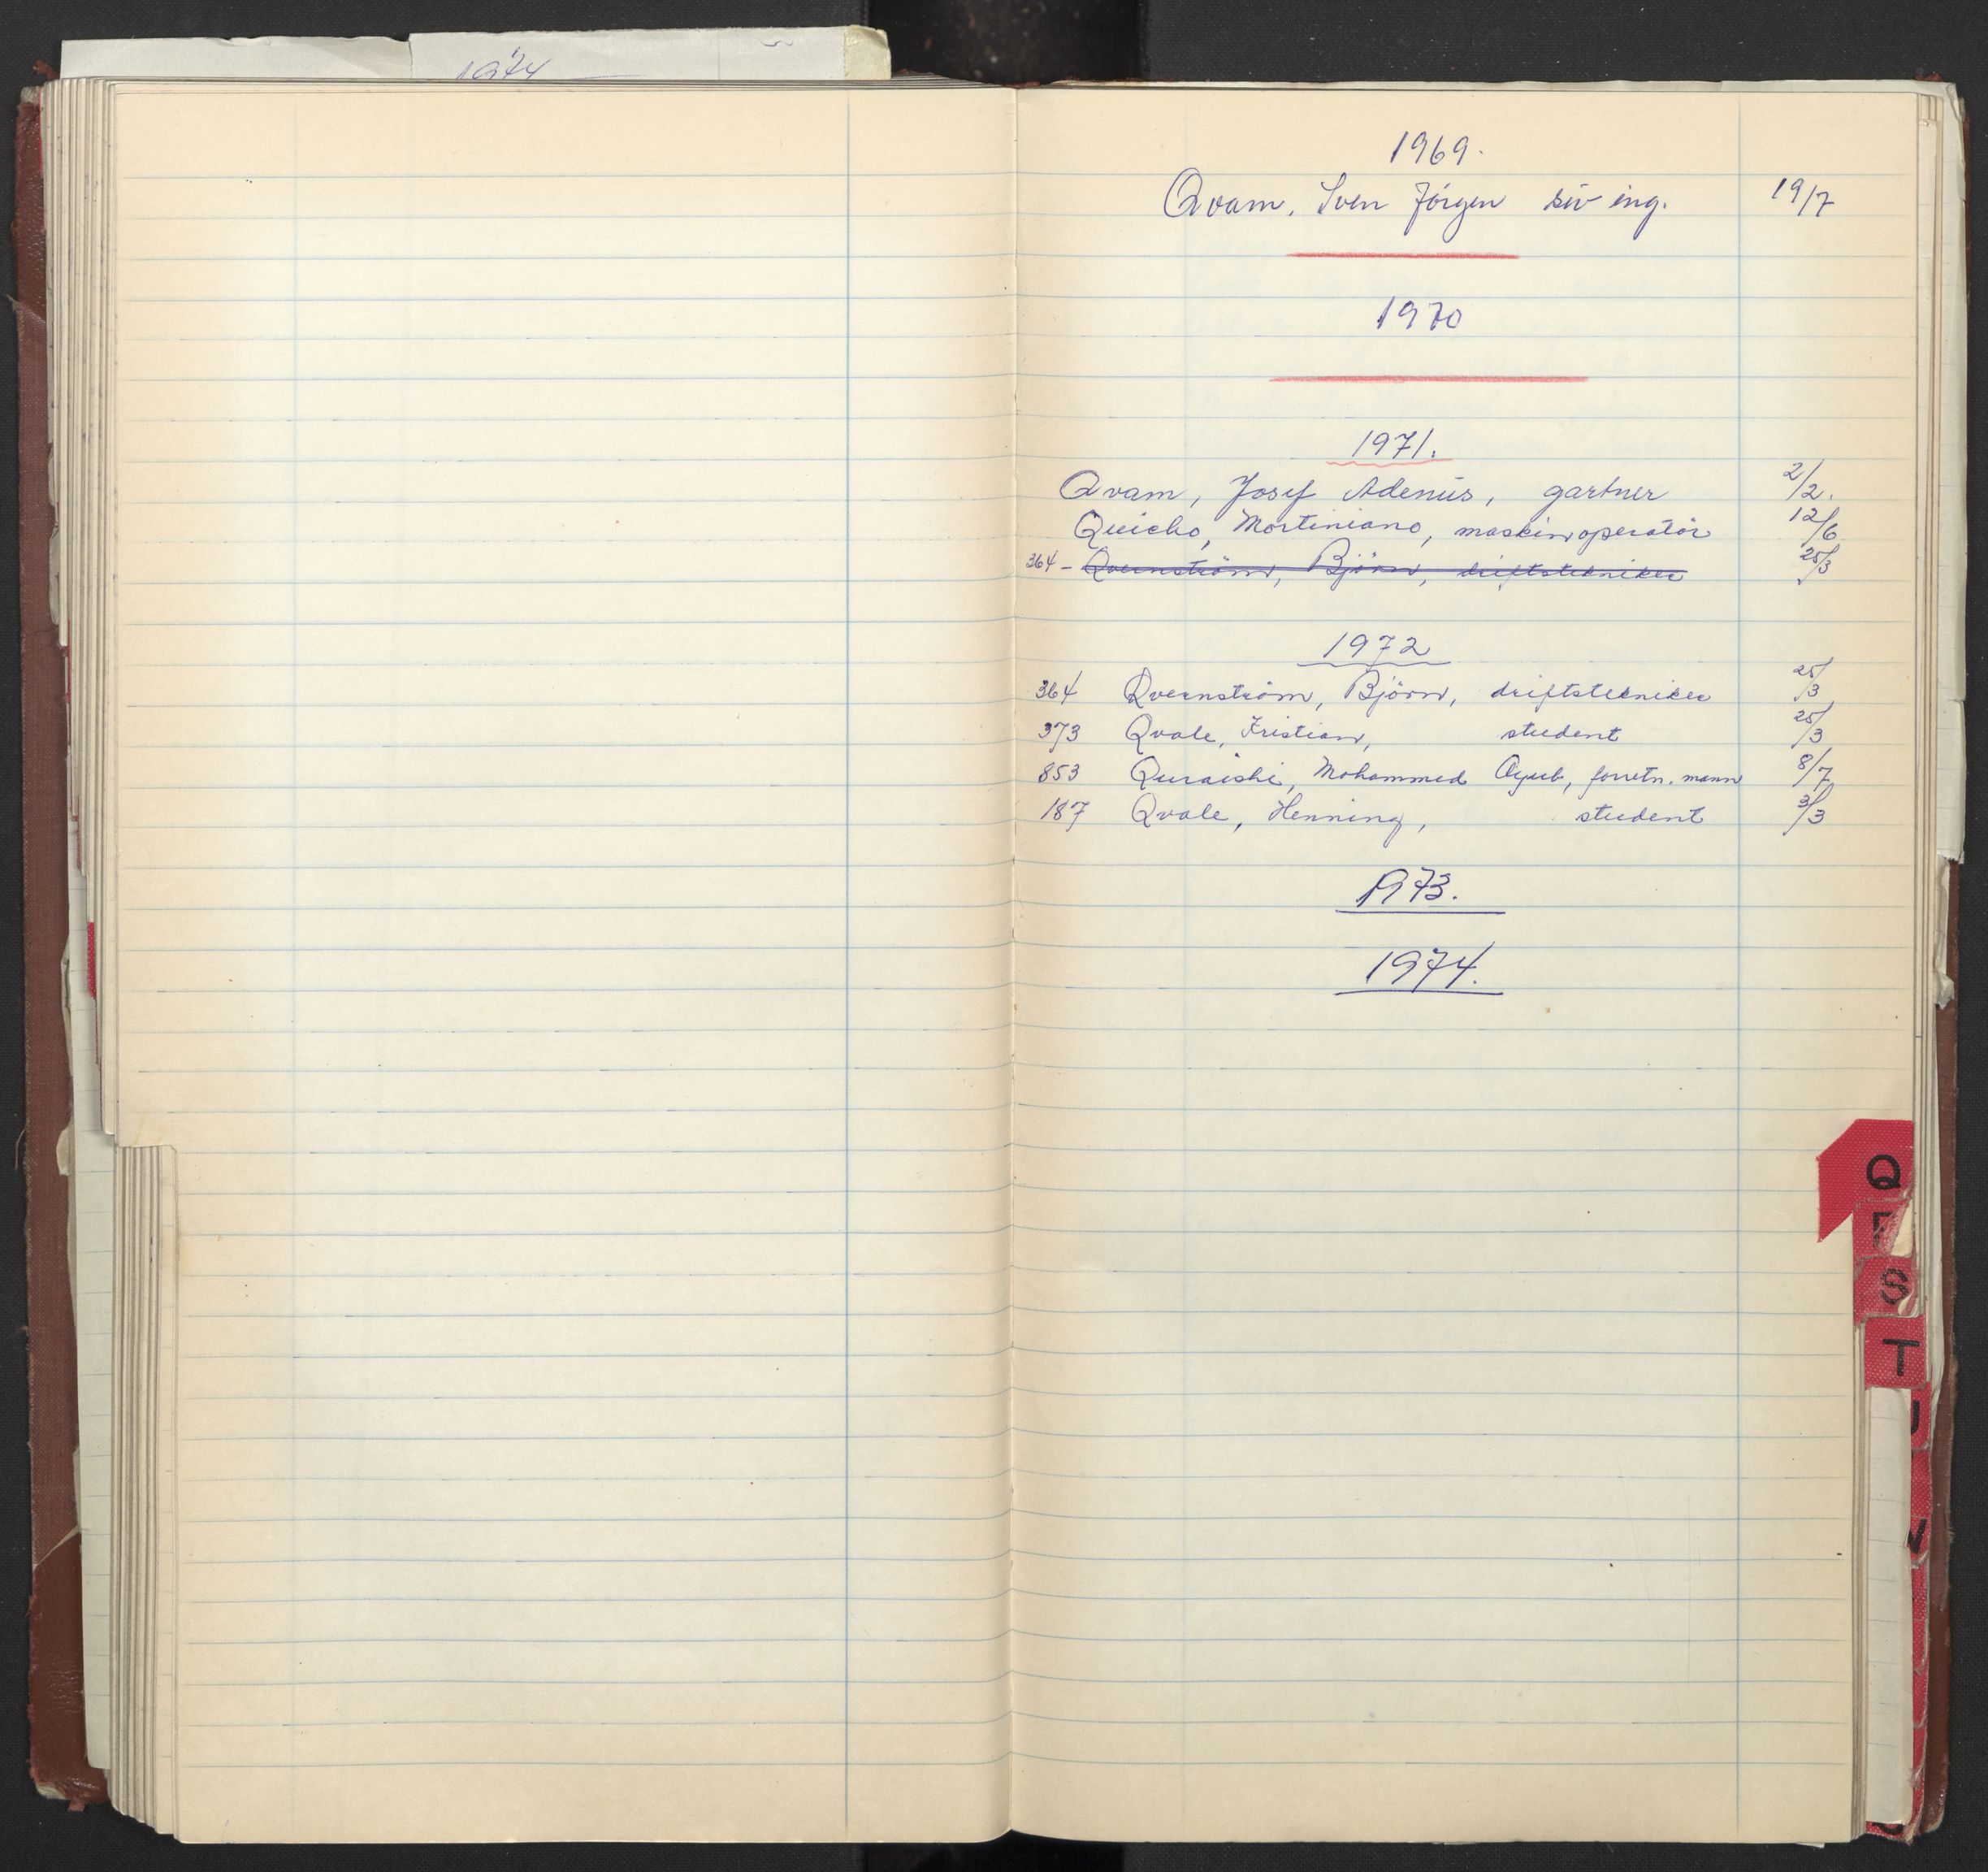 1974
1969.
Qvam, Sven Jörgen siv ing. 19/7
1970
1971.
Qvam, Josef Adenius, gartner 2/2.
Quicho, Mortiniano, maskinoperatör 12/6
364 - Qvernström, Björn, driftstekniker 25/3
1972
364 Qvernström, Björn, driftstekniker 25/3
373 Qvale, Kristian, student 25/3
853 Quraishi, Mohammed Ayub, forretn. mann 8/7
187 Qvale, Henning, student 3/3
1973.
1974.
Q
S
T